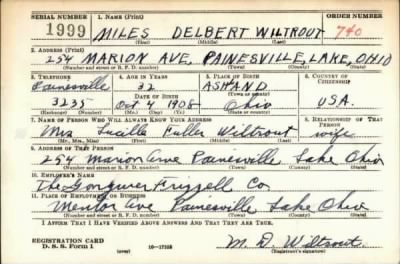 SERIAL NUMBER 1. NAME (Print) ORDER NUMBER
1999 MILES DELBERT WILTROUT 740
(First) (Middle) (Last)
2. ADDRESS (Print)
254 MARION AVE. PAINESVILLE, LAKE, OHIO
(Number and street or R. F. D. number) (Town) (County) (State)
3. TELEPHONE 4. AGE IN YEARS 5. PLACE OF BIRTH 6. COUNTRY OF CITIZENSHIP
Painesville 32 ASHAND
DATE OF BIRTH (Town or county)
3235 Oct 4 1908 Ohio USA.
(Exchange) (Number) (Mo.) (Day) (Yr.) (State or country)
7. NAME OF PERSON WHO WILL ALWAYS KNOW YOUR ADDRESS 8. RELATIONSHIP OF THAT PERSON
Mrs Lucille Fuller Wiltrout wife
(Mr., Mrs., Miss) (First) (Middle) (Last)
9. ADDRESS OF THAT PERSON
254 Marion Ave Painesville Lake Ohio
(Number and street or R. F. D. number) (Town) (County) (State)
10. EMPLOYER'S NAME
The Frizzell Co
11. PLACE OF EMPLOYMENT OR BUSINESS
Mentor Ave Painesville Lake Ohio
(Number and street or R. F. D. number) (Town) (County) (State)
I AFFIRM THAT I HAVE VERIFIED ABOVE ANSWERS AND THAT THEY ARE TRUE.
REGISTRATION CARD
D. S. S. Form 1 16-17105 M. D. Wiltrout
(Registrant's signature)